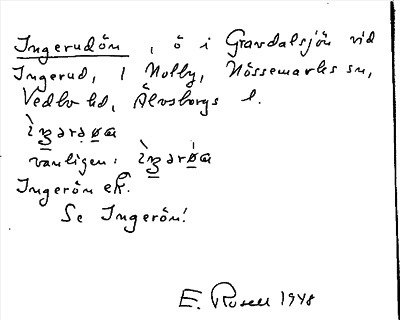 Ingerudön, ö i Gravdalsjön vid
Ingerud, 1 Nolby, Nössemarks sn,
Vedbo hd, Älvsborgs l.
ìŋərəøa
vanligen: ìŋərǿa
Ingerön ek.
Se Ingerön!
E. Rosell 1948